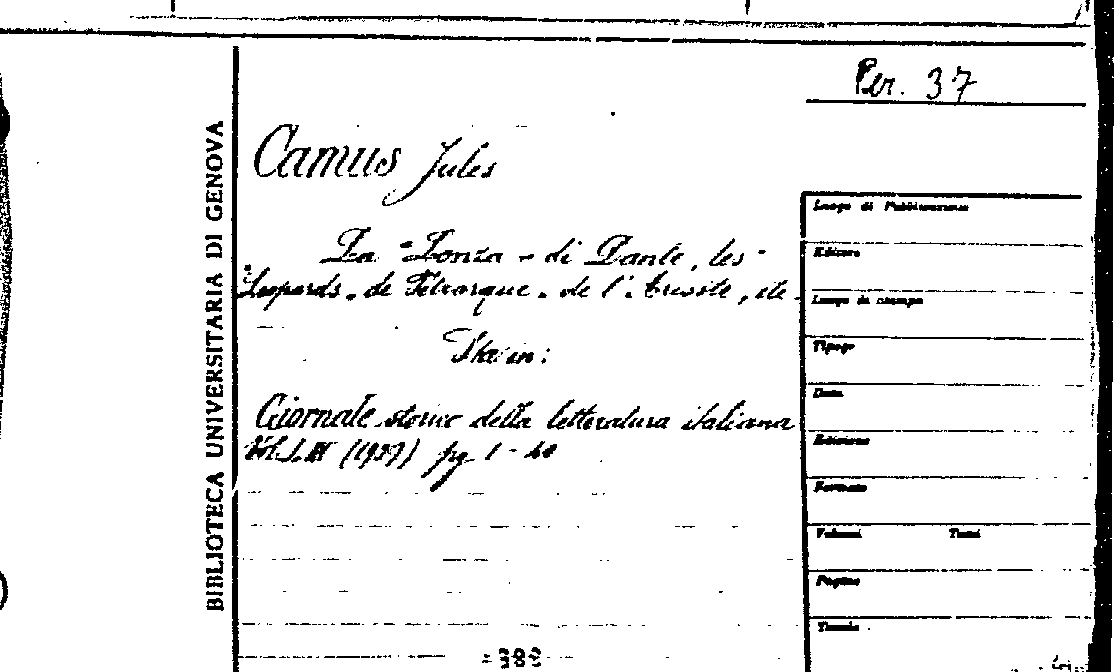 Per. 37
BIBLIOTECA UNIVERSITARIA DI GENOVA
Camus Jules
La "Lonza" di Dante, les
"Léopards" de Pétrarque, de l'Arioste, etc.
Sta in:
Giornale storico della letteratura italiana
Vol. (1937) pg 1 - 40
Luogo di Pubblicazione
Editore
Luogo di stampa
Tipogr
Data
Edizione
Formato
Volumi Tomi
Pagine
Tavole